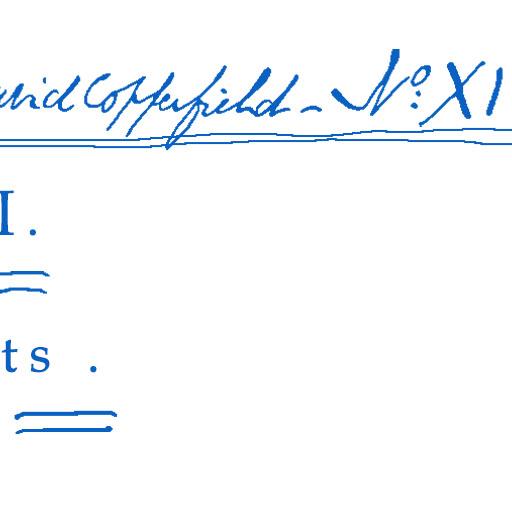 avid Copperfield – No. XI
I.
ts .